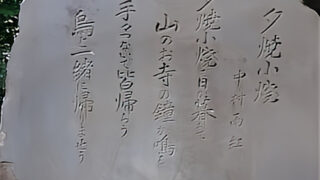 夕焼小焼
中村雨紅
夕焼小焼で日が暮れて
山のお寺の鐘が鳴る
手々つないで皆帰らう
烏と一緒に帰りませう